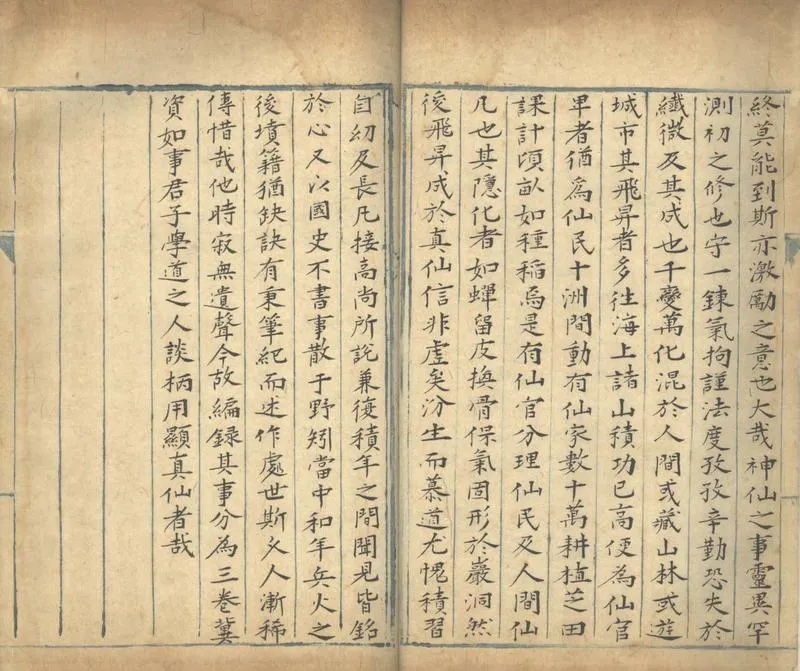 終莫能到斯亦激勵之意也大哉神仙之事靈異罕
測初之修也守一鍊氣拘謹法度孜孜辛勤恐失於
纖微及其成也千變萬化混於人間或藏山林或遊
城市其飛昇者多往海上諸山積功已高便為仙官
卑者猶為仙民十洲間動有仙家數十萬耕植芝田
課計頃畝如種稻焉是有仙官分理仙民及人間仙
凡也其隱化者如蟬留皮換骨保氣固形於巖洞然
後飛昇成於真仙信非虛矣汾生而慕道尤愧積習
自幼及長凡接高尚所說兼復積年之間聞見皆銘
於心又以國史不書事散于野矧當中和年兵火之
後墳籍猶缺訣有秉筆紀而述作處世斯文人漸稀
傳惜哉他時寂無遺聲今故編録其事分為三卷冀
資如事君子學道之人談柄用顯真仙者哉